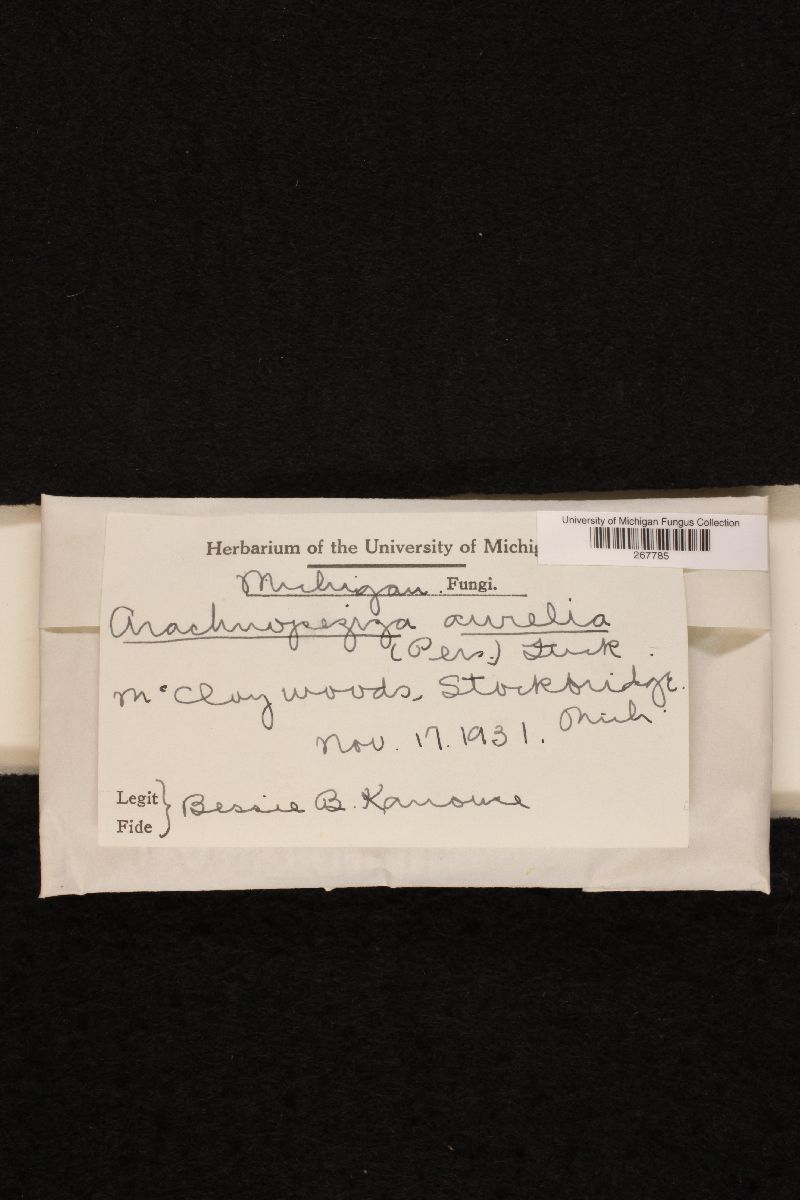 University of Michigan Fungus Collection
267785
Herbarium of the University of Michig
Michigan. Fungi.
Arachnopeziza aurelia
(Pers.) Fuck.
McCloy woods, Stockbridge.
Mich.
Nov. 17. 1931.
Legit
Fide
Bessie B. Kanouse